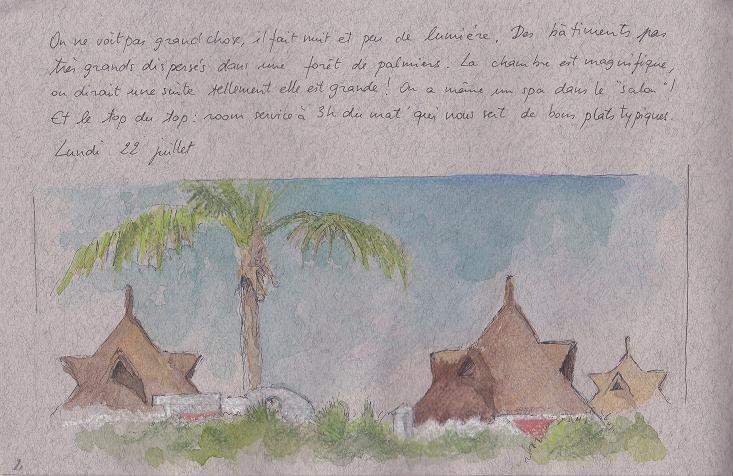 On ne voit pas grand chose, il fait nuit et peu de lumière. Des bâtiments pas
très grands dispersés dans une forêt de palmiers. La chambre est magnifique,
on dirait une suite tellement elle est grande ! On a même un spa dans le "salon" !
Et le top du top : room service à 3h du mat' qui nous sert de bons plats typiques.
Lundi 22 juillet
2